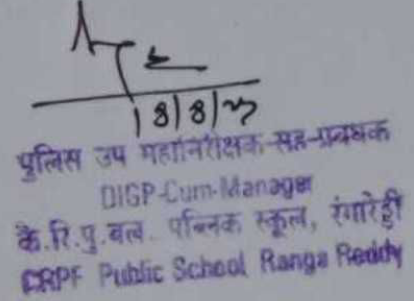 18/8/23
पुलिस उप महानिरीक्षक-सह-प्रबंधक
DIGP-Cum-Manager
के.रि.पु.बल. पब्लिक स्कूल, रंगारेड्डी
CRPF Public School Ranga Reddy